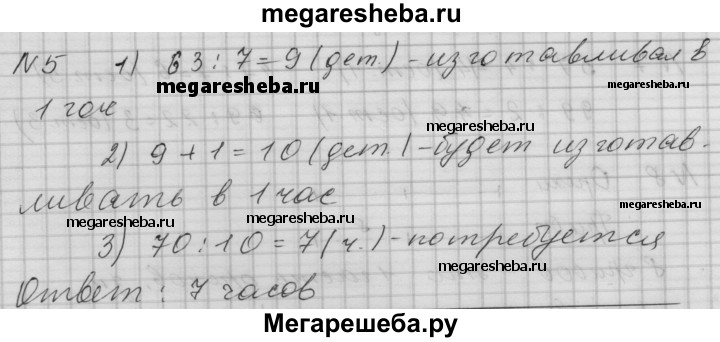 megaresheba.ru
N5 1) 63 : 7 = 9 (дет.) - изготавливал в
megaresheba.ru
1 гоч
megaresheba.ru
2) 9 + 1 = 10 (дет.) - будет изготав-
megaresheba.ru
ливать в 1 час
megaresheba.ru megaresheba.ru
3) 70 : 10 = 7 (ч.) - потребуется
megaresheba.ru
Ответ : 7 часов
Мегарешеба.ру